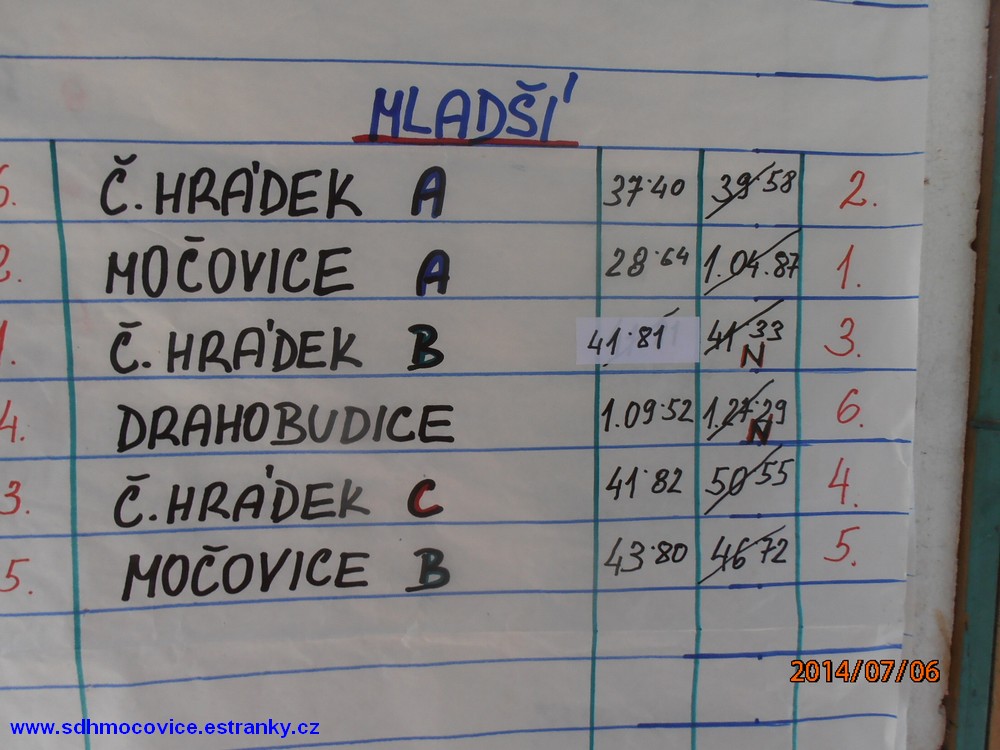 MLADŠÍ
6. Č.HRÁDEK A 37.40 39.58 2.
2. MOČOVICE A 28.64 1.04.87 1.
1. Č.HRÁDEK B 41.81 41.33 N 3.
4. DRAHOBUDICE 1.09.52 1.27.29 N 6.
3. Č.HRÁDEK C 41.82 50.55 4.
5. MOČOVICE B 43.80 46.72 5.
2014/07/06
www.sdhmocovice.estranky.cz